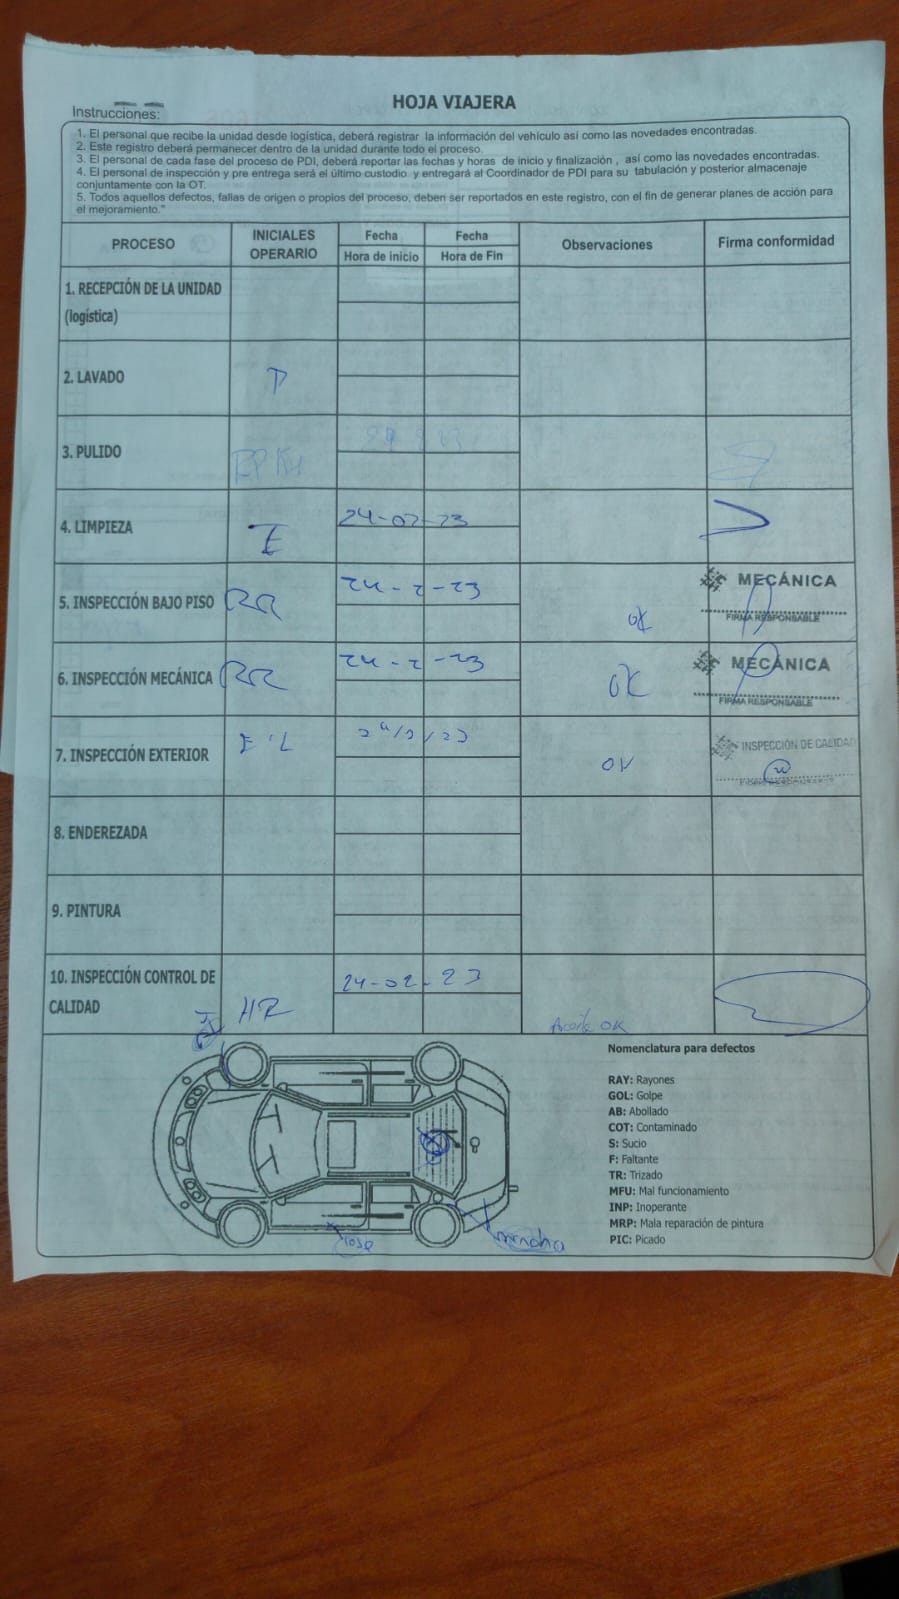 HOJA VIAJERA
Instrucciones:
1. El personal que recibe la unidad desde logística, deberá registrar la información del vehículo así como las novedades encontradas.
2. Este registro deberá permanecer dentro de la unidad durante todo el proceso.
3. El personal de cada fase del proceso de PDI, deberá reportar las fechas y horas de inicio y finalización , así como las novedades encontradas.
4. El personal de inspección y pre entrega será el último custodio y entregará al Coordinador de PDI para su tabulación y posterior almacenaje
conjuntamente con la OT.
5. Todos aquellos defectos, fallas de origen o propios del proceso, deben ser reportados en este registro, con el fin de generar planes de acción para
el mejoramiento."
PROCESO INICIALES OPERARIO Fecha Hora de inicio Fecha Hora de Fin Observaciones Firma conformidad
1. RECEPCIÓN DE LA UNIDAD
(logística)
2. LAVADO
3. PULIDO
4. LIMPIEZA 24-02-23
5. INSPECCIÓN BAJO PISO RR 24-2-23 OK MECÁNICA
FIRMA RESPONSABLE
6. INSPECCIÓN MECÁNICA RR 24-2-23 OK MECÁNICA
FIRMA RESPONSABLE
7. INSPECCIÓN EXTERIOR 24/2/23 OK INSPECCIÓN DE CALIDAD
FIRMA RESPONSABLE
8. ENDEREZADA
9. PINTURA
10. INSPECCIÓN CONTROL DE
CALIDAD HR 24-02-23
OK
Nomenclatura para defectos
RAY: Rayones
GOL: Golpe
AB: Abollado
COT: Contaminado
S: Sucio
F: Faltante
TR: Trizado
MFU: Mal funcionamiento
INP: Inoperante
MRP: Mala reparación de pintura
PIC: Picado
mancha